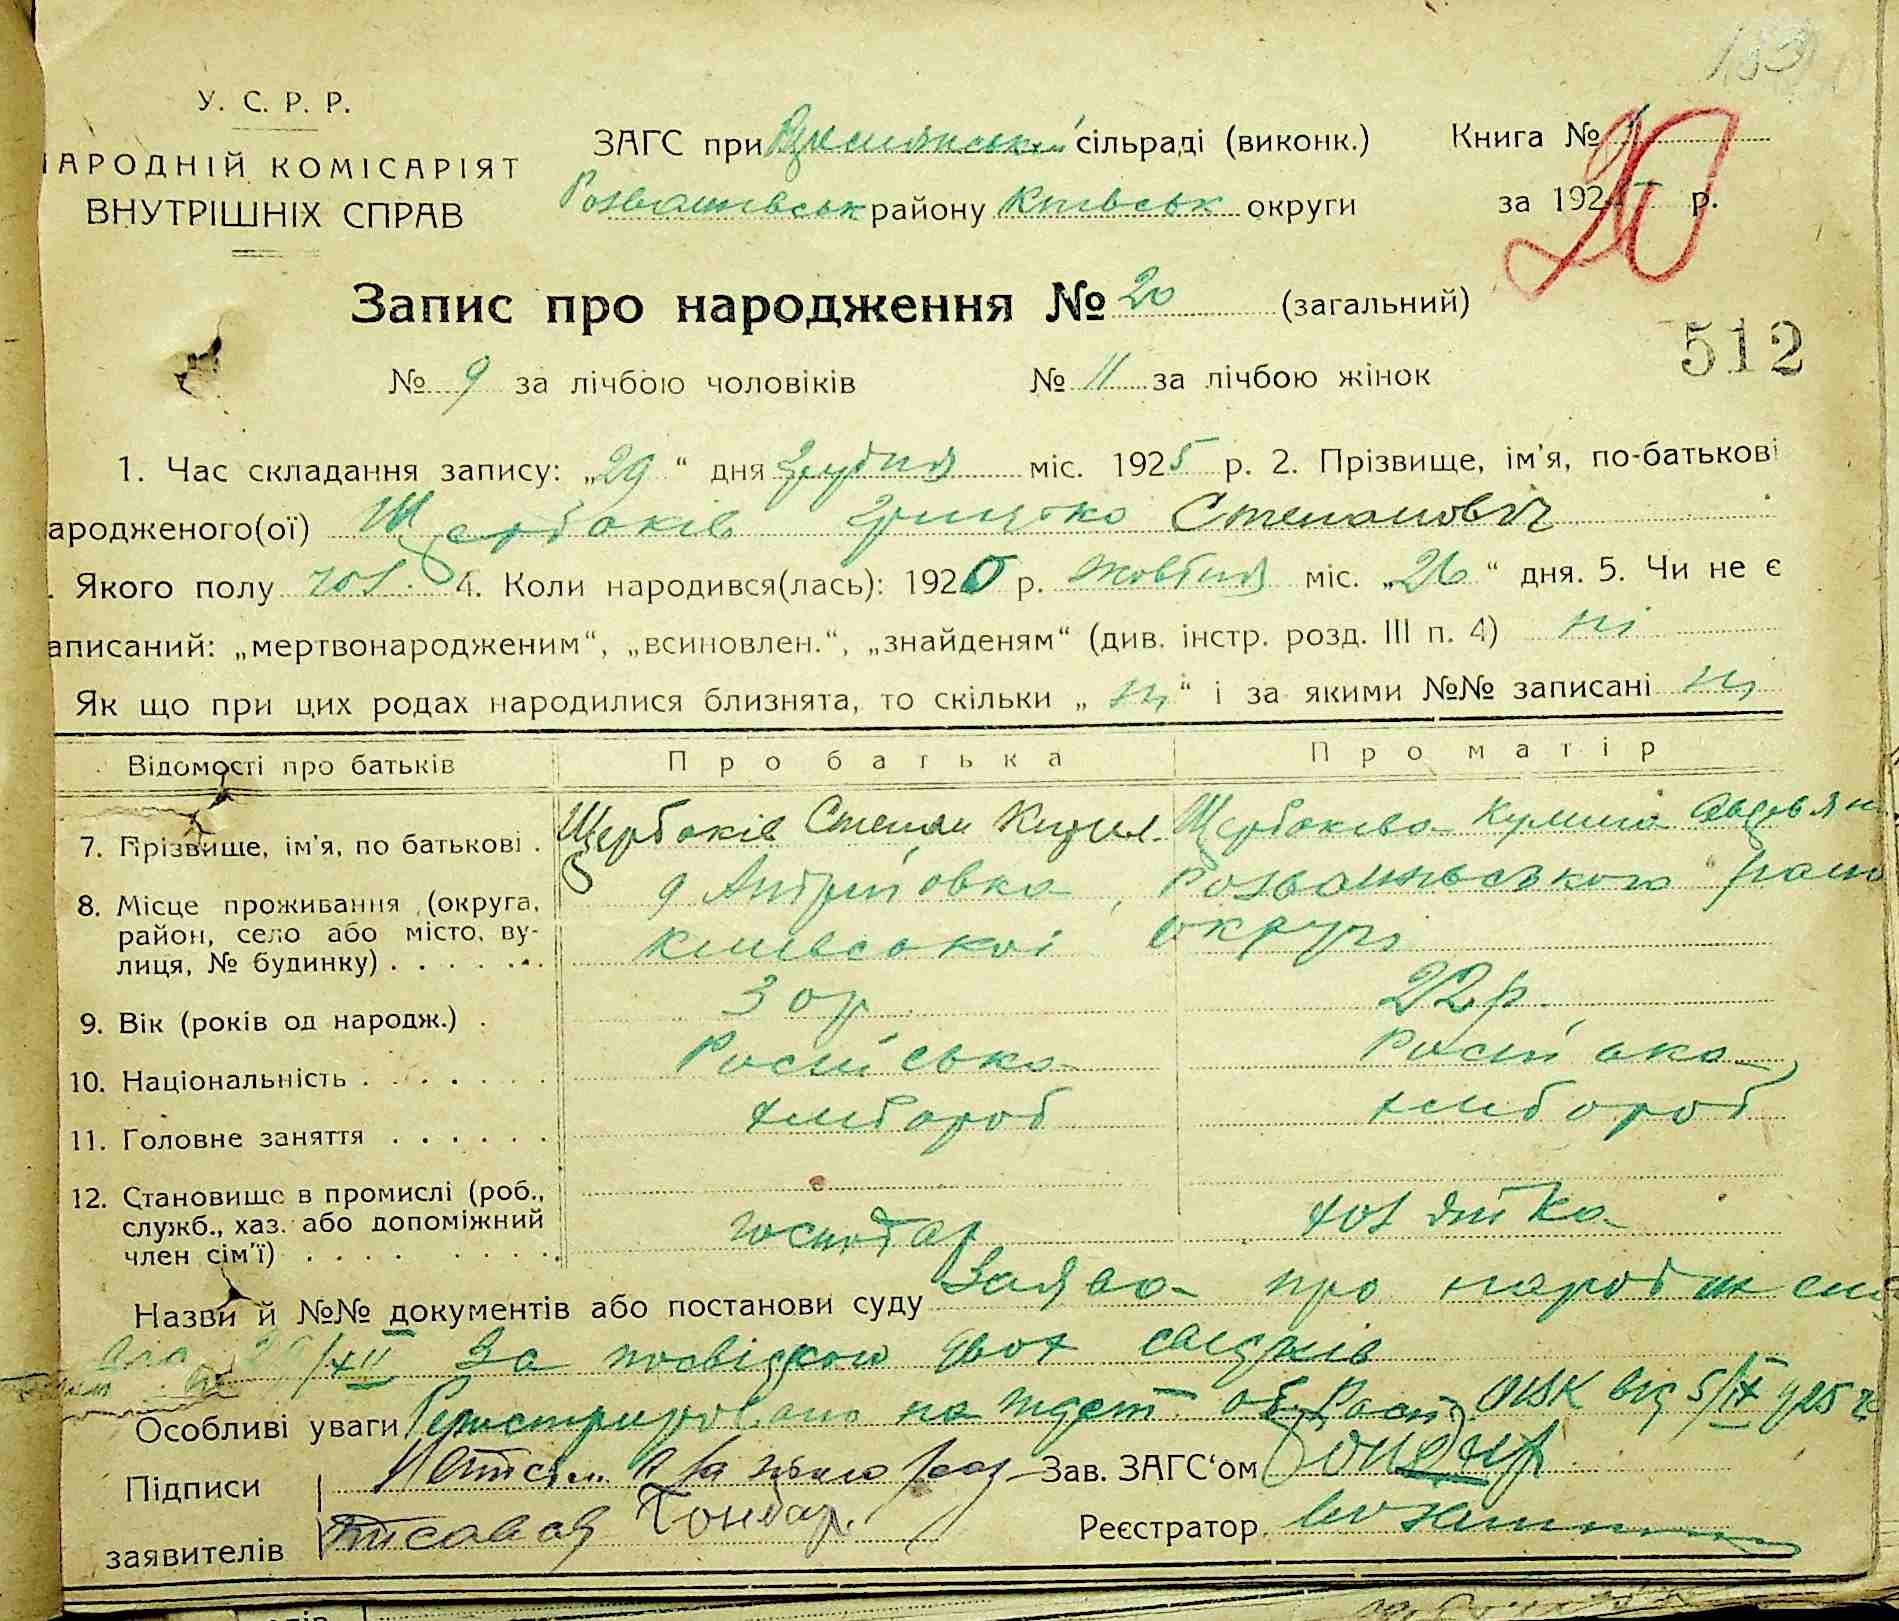 У. С. Р. Р.
НАРОДНІЙ КОМІСАРІЯТ
ВНУТРІШНІХ СПРАВ
ЗАГС при сільраді (виконк.)
району Київськ округи
Книга № 1
за 1925 р.
20
Запис про народження № 20 (загальний)
512
№ 9 за лічбою чоловіків № 11 за лічбою жінок
1. Час складання запису: „29“ дня грудня міс. 1925 р. 2. Прізвище, ім'я, по-батькові
ародженого(ої) Щербаків Грицько Степанович
. Якого полу чол. 4. Коли народився(лась): 1925 р. жовтня міс. „26“ дня. 5. Чи не є
аписаний: „мертвонародженим“, „всиновлен.“, „знайденям“ (див. інстр. розд. III п. 4) ні
Як що при цих родах народилися близнята, то скільки „ні“ і за якими №№ записані ні
Відомості про батьків Про батька Про матір
7. Прізвище, ім'я, по батькові . Щербаків Степан Кирил. Щербакова
8. Місце проживання (округа, район, село або місто, ву-
лиця, № будинку) . . . . . . . Київської округи
9. Вік (років од народж.) . 30 р 22 р.
10. Національність . . . . . . . Російська Російська
11. Головне заняття . . . . . . хлібороб хлібороб
12. Становище в промислі (роб.,
служб., хаз. або допоміжний
член сім'ї) . . . . . . . . . господар хозяйка
Назви й №№ документів або постанови суду Заява про народження
29/XII За посвідкою двох свідків
Особливі уваги Регистрировано на ОВК від 5/IX 925 р
Підписи
заявителів Гончар.
Зав. ЗАГС'ом
Реєстратор